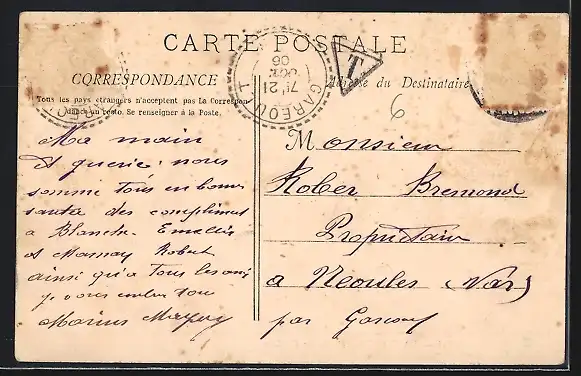 CARTE POSTALE
CORRESPONDANCE
Tous les pays étrangers n'acceptent pas La Correspon
dance au recto. Se renseigner à la Poste.
Adresse du Destinataire
GAREOULT
7E 21
OCT.
06
T
6
Ma main
et guerie. nous
somme tous en bonne
santé des compliment
a Blanche Emelie
et Robert
ainsi qu'a tous les ami
je vous embra tous
Marius
Monsieur
Rober Bremond
Propriétaire
a Neoules (Var)
par